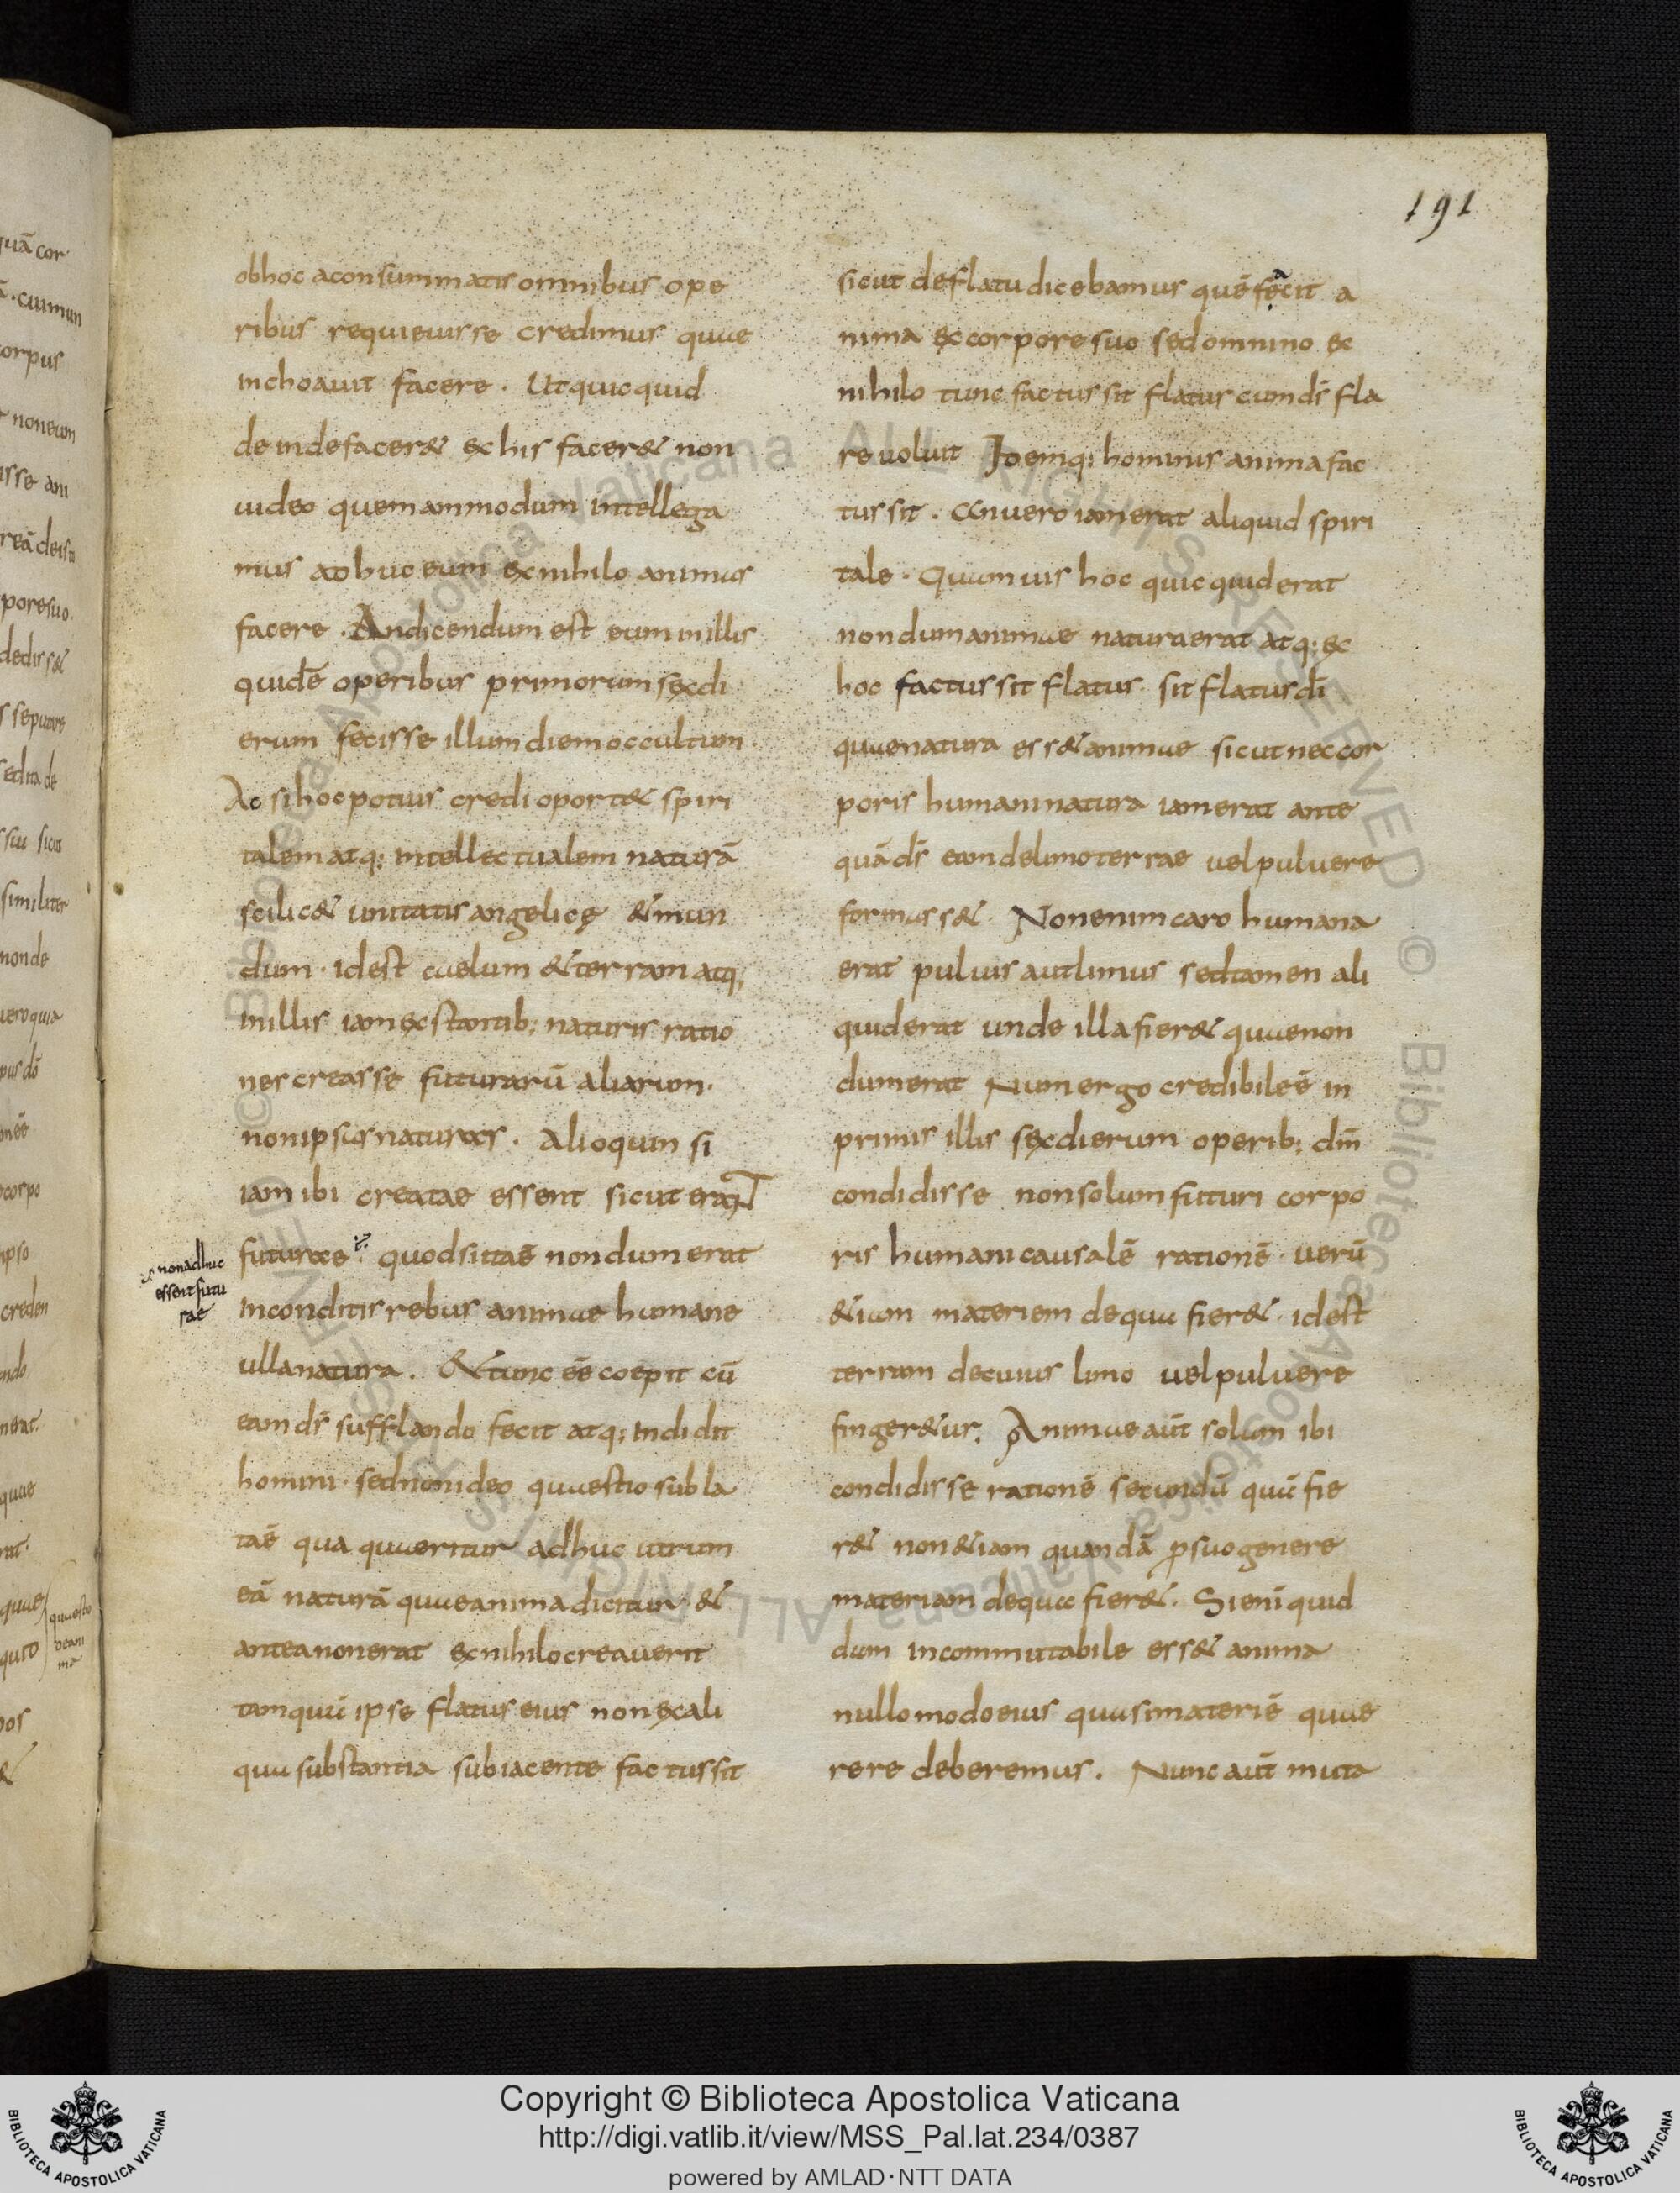 191
ob hoc a consummatis omnibus ope
ribus requieuisse credimus quae
inchoauit facere. Ut quicquid
deinde facer& ex his facer& non
uideo quemammodum intellega
mus adhuc eum ex nihilo animas
facere. An dicendum est eum in illis
quidē operibus primorum sex di
erum fecisse illum diem occultum.
Ac si hoc potius credi oport& spiri
talem atq; intellectualem naturā
scilic& unitatis angelicę & mun
dum. id est caelum & terram atq;
in illis iam exstantib; naturis ratio
nes creasse futurarū aliarum.
non ipsas naturas. Alioquin si
iam ibi creatae essent sicut erant
futurae. quod si ita ē nondum erat
non adhuc
essent futu
rae
in conditis rebus animae humane
ulla natura. & tunc ēē coepit cū
eam ds̄ sufflando fecit atq; indidit
homini. sed non ideo quaestio subla
ta ē qua quaeritur adhuc utrum
eā naturā quae anima dicitur &
antea non erat ex nihilo creauerit
tamquā ipse flatus eius non ex ali
qua substantia subiacente factus sit
sicut de flatu dicebamus quē facit a
nima ex corpore suo sed omnino ex
nihilo tunc factus sit flatus cum ds̄ fla
re uoluit Idemq; hominis anima fac
tus sit. An uero iam erat aliquid spiri
tale. Quamuis hoc quicquid erat
nondum animae natura erat atq; ex
hoc factus sit flatus. sit flatus dī
quae natura ess& animae sicut nec cor
poris humani natura iam erat ante
quā ds̄ eam de limo terrae uel puluere
formass&. Non enim caro humana
erat puluis aut limus sed tamen ali
quid erat unde illa fier& quae non
dum erat Num ergo credibile ē in
primis illis sex dierum operib; dm̄
condidisse non solum futuri corpo
ris humani causalē rationē. uerū
&iam materiem de qua fier&. id est
terram de cuius limo uel puluere
finger&ur. Animae aūt solam ibi
condidisse rationē secundū quā fie
r& non &iam quandā p suo genere
materiam de qua fier&. Si enī quid
dam incommutabile ess& anima
nullo modo eius quasi materiē quae
rere deberemus. Nunc aūt muta
Copyright © Biblioteca Apostolica Vaticana
http://digi.vatlib.it/view/MSS_Pal.lat.234/0387
powered by AMLAD·NTT DATA
BIBLIOTECA APOSTOLICA VATICANA
BIBLIOTECA APOSTOLICA VATICANA